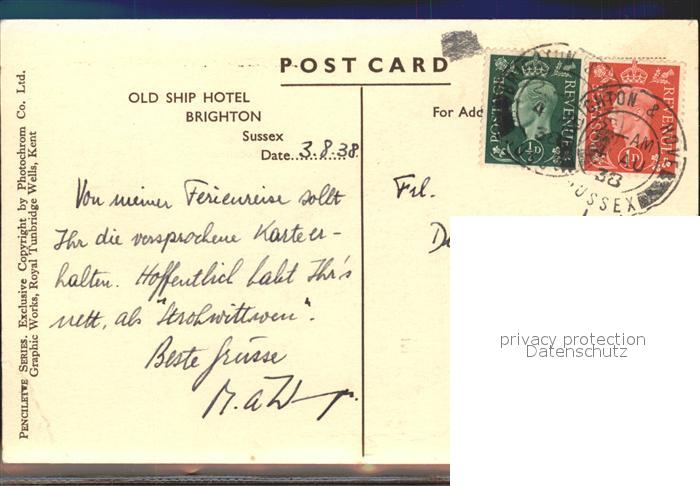 POST CARD
OLD SHIP HOTEL
BRIGHTON
Sussex
Date 3.8.38
For Add
PENCILETTE SERIES. Exclusive Copyright by Photochrom Co. Ltd.
Graphic Works, Royal Tunbridge Wells, Kent
Von meiner Ferienreise sollt
Ihr die versprochene Karte er-
halten. Hoffentlich habt Ihr's
nett, als "Strohwittwen".
Beste Grüsse
Frl.
POSTAGE REVENUE
½D
REVENUE
BRIGHTON & HOVE
AM
4 AU
38
SUSSEX
privacy protection
Datenschutz